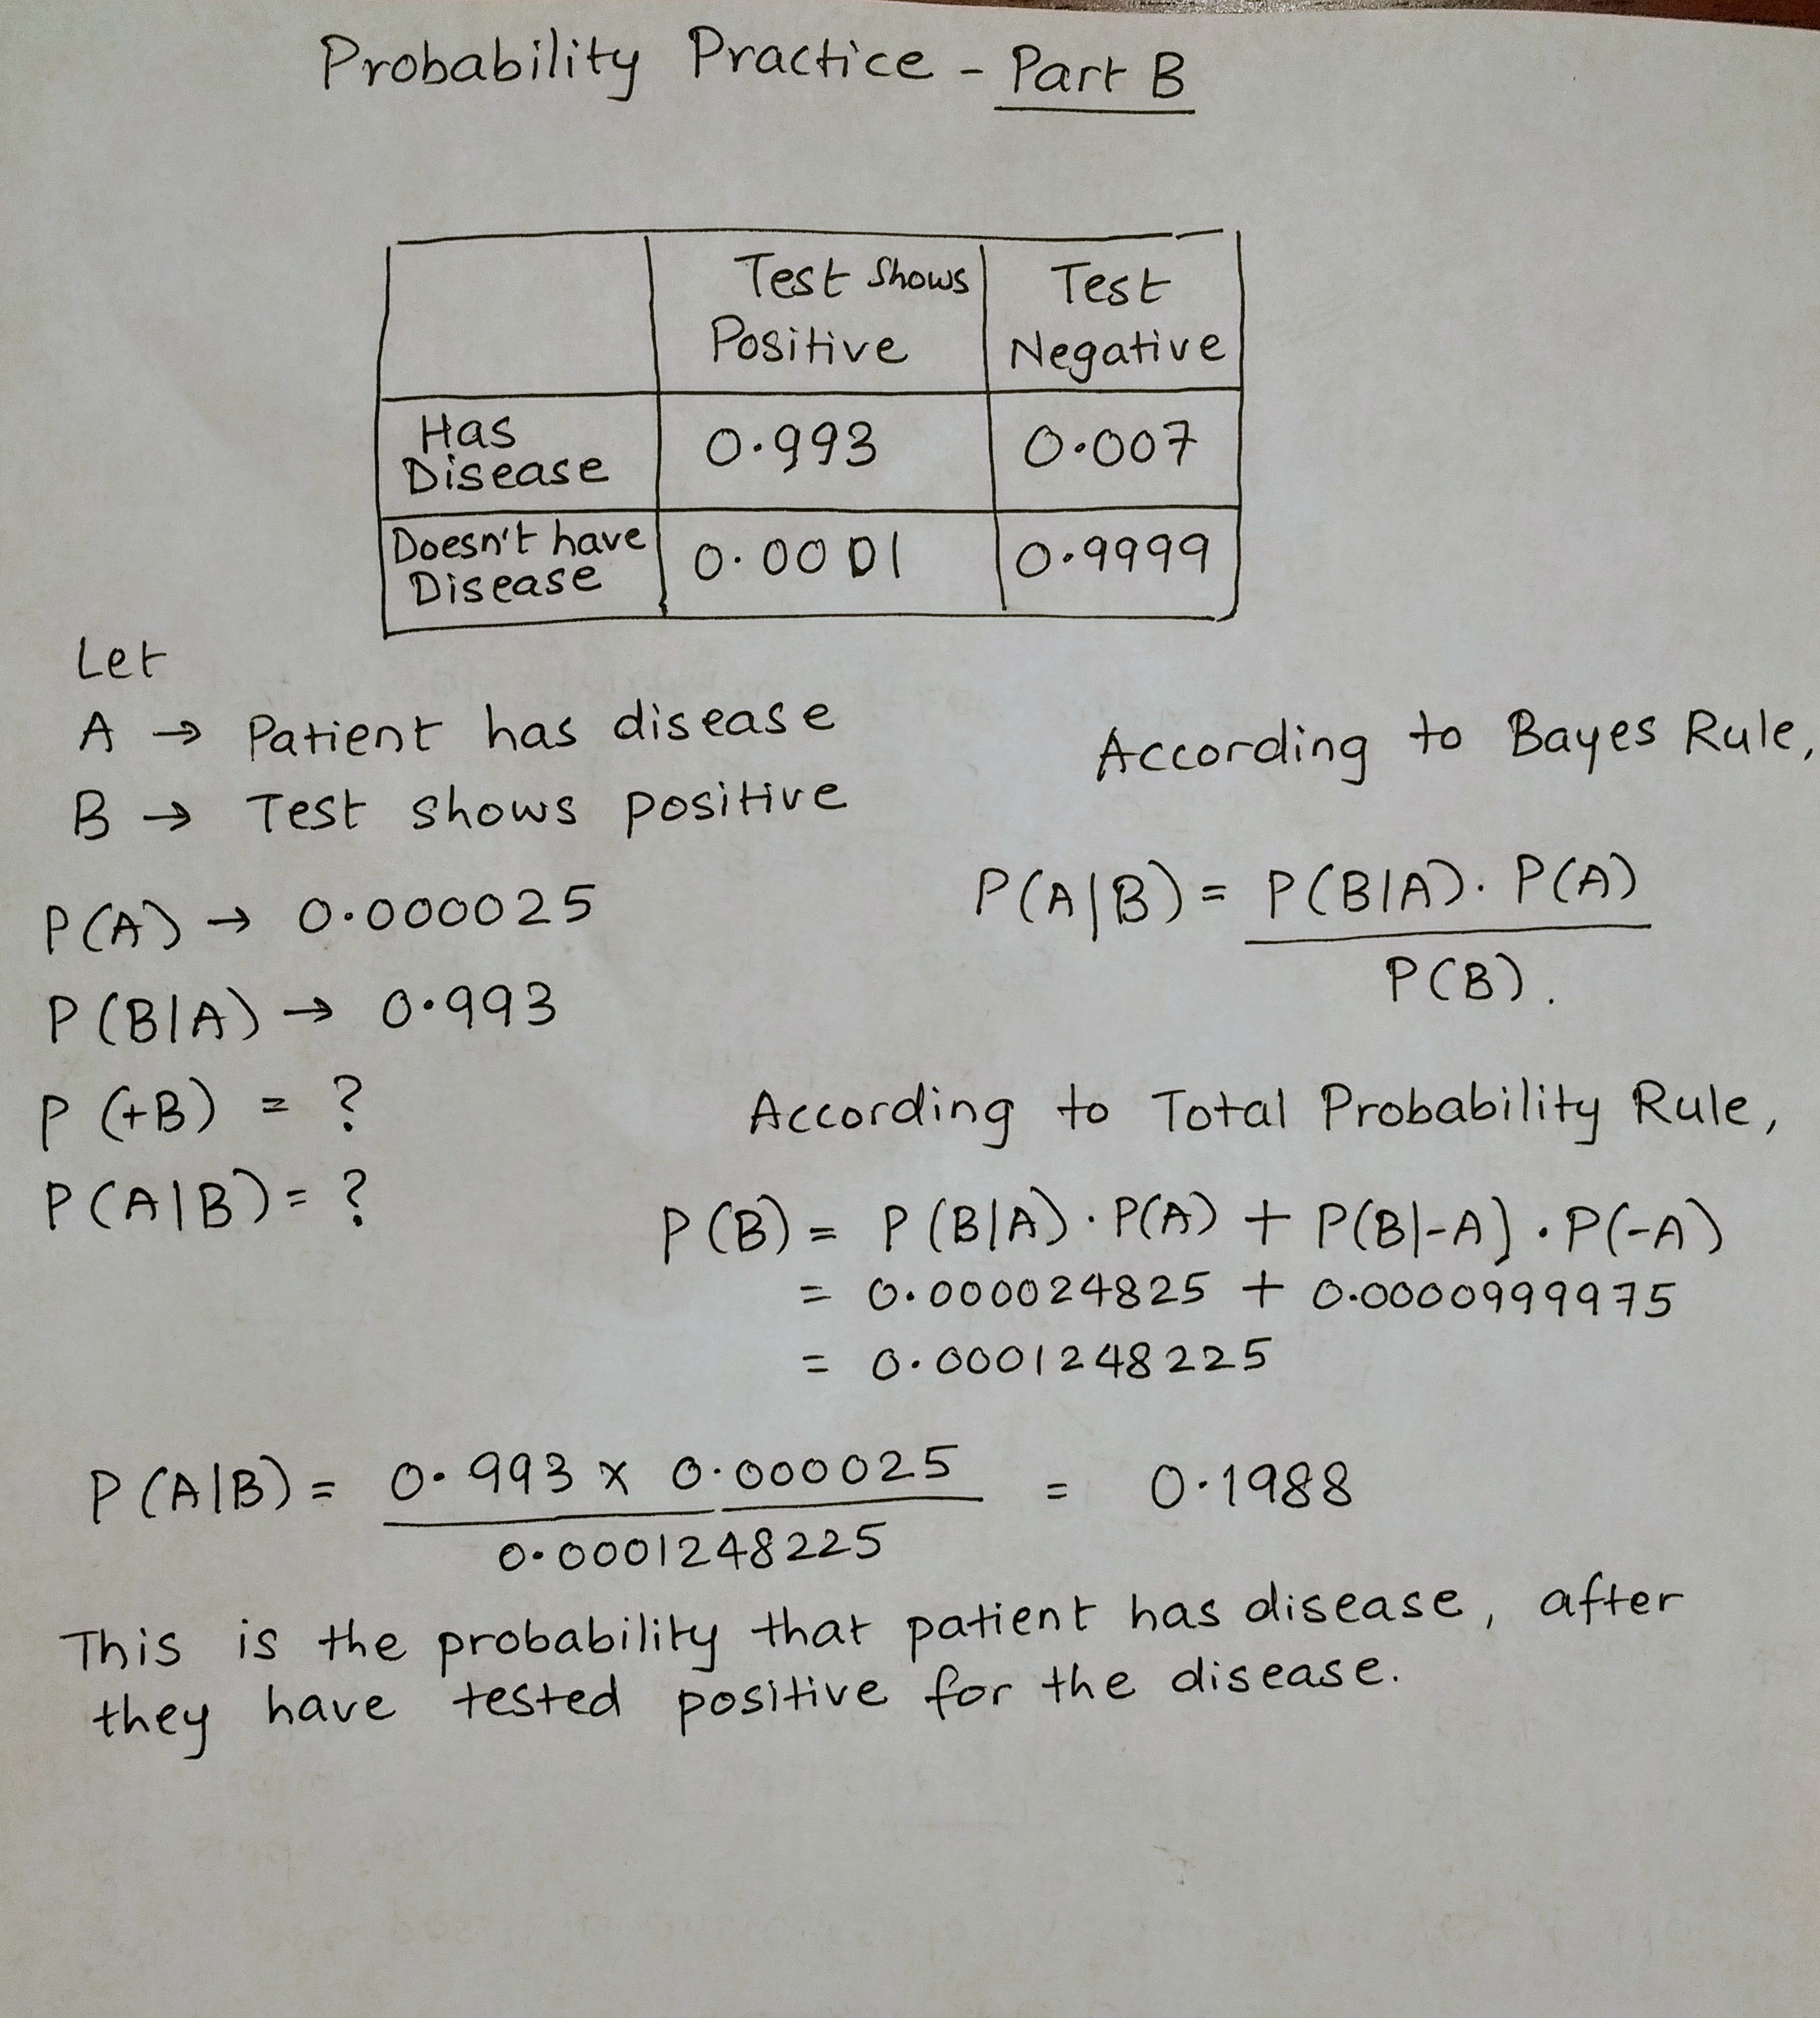 Probability Practice - Part B
Test Shows Positive
Test Negative
Has Disease
0.993
0.007
Doesn't have Disease
0.0001
0.9999
Let
A → Patient has disease
B → Test shows positive
P(A) → 0.000025
P(B|A) → 0.993
P(+B) = ?
P(A|B) = ?
According to Bayes Rule,
P(A|B) = P(B|A). P(A)
P(B).
According to Total Probability Rule,
P(B) = P(B|A) · P(A) + P(B|-A) · P(-A)
= 0.000024825 + 0.0000999975
= 0.0001248225
P(A|B) = 0.993 x 0.000025 = 0.1988
0.0001248225
This is the probability that patient has disease, after
they have tested positive for the disease.